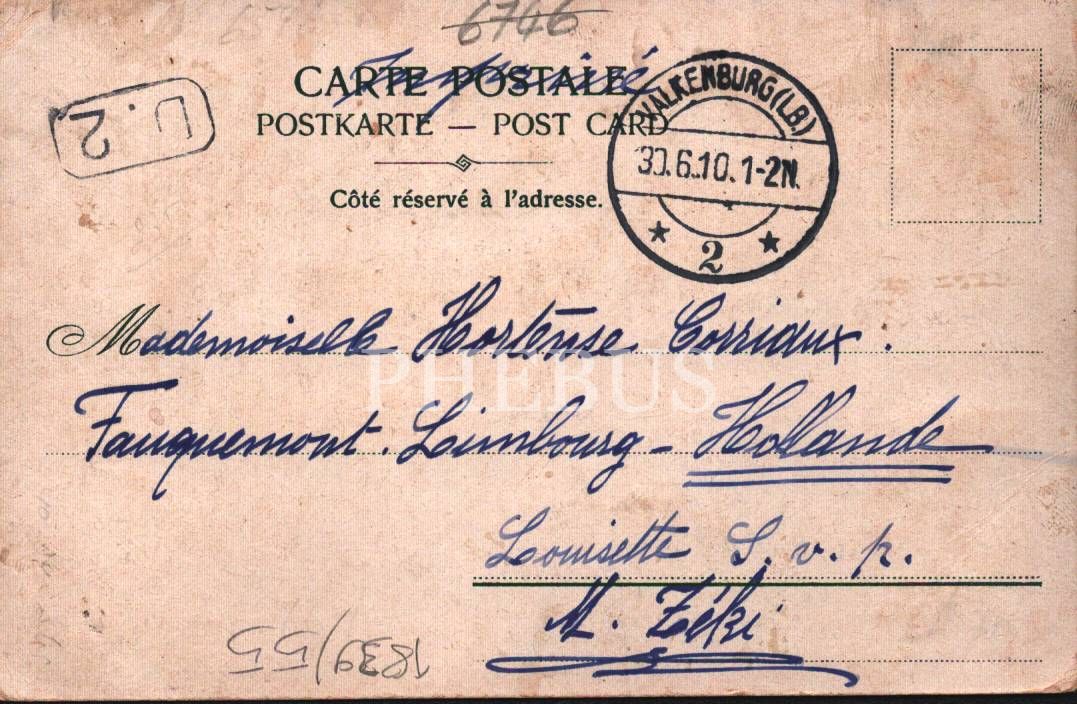 6746
CARTE POSTALE
POSTKARTE — POST CARD
Côté réservé à l'adresse.
U.2
VALKENBURG (LB.)
30.6.10.1-2N.
2
Mademoiselle Hortense Corriaux.
Fauquemont. Limbourg - Hollande
Louisette S. v. p.
M. Zéki
1839/55
PHEBUS